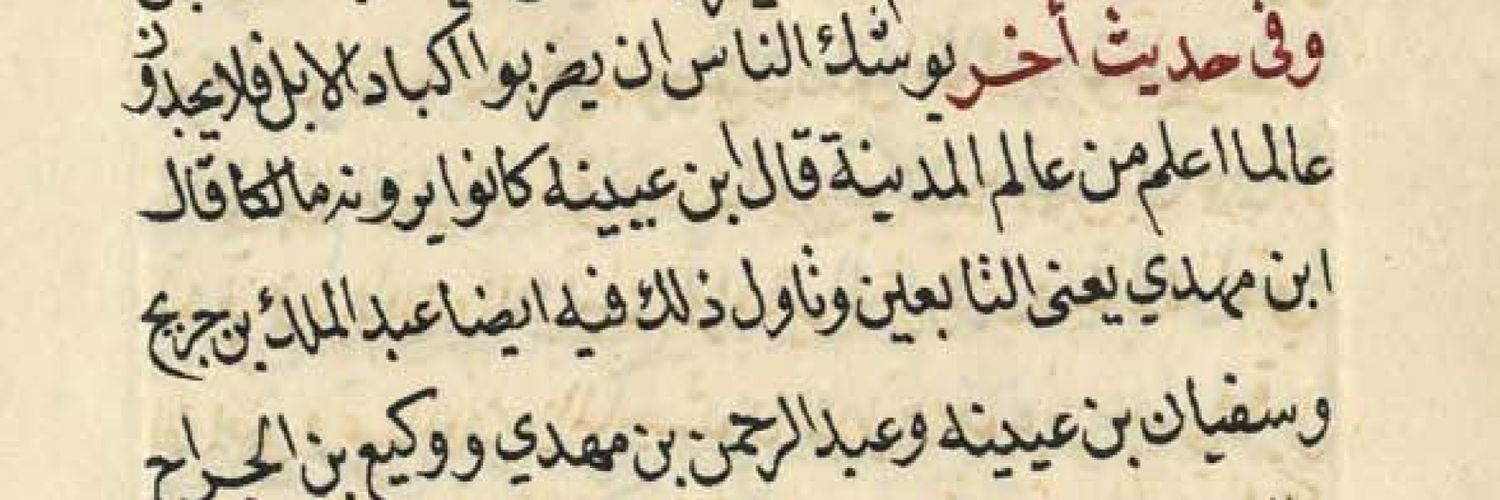 وفى حديث أخر يوشك الناس ان يضربوا اكباد الابل فلا يجدون
عالما اعلم من عالم المدينة قال ابن عيينه كانوا يرونه مالكا قال
ابن مهدي يعنى التابعين وتاول ذلك فيه ايضا عبد الملك بن جريج
وسفيان بن عيينه وعبد الرحمن بن مهدي ووكيع بن الجراح